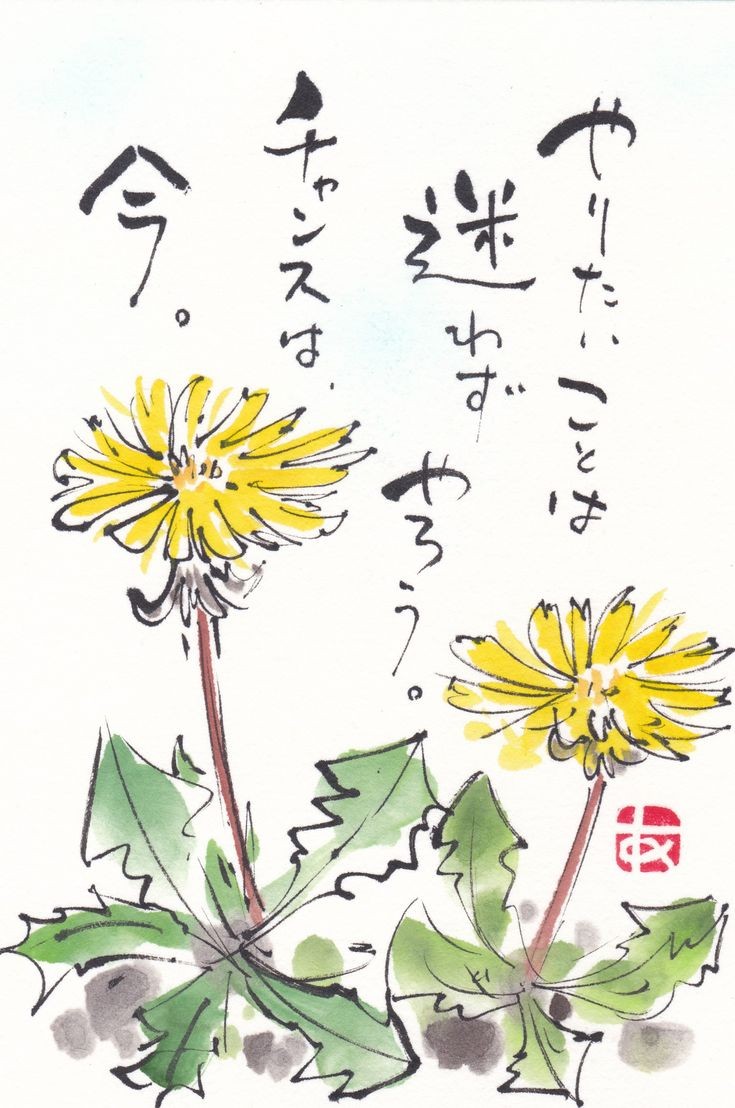 やりたいことは
迷わず
やろう。
チャンスは、
今。
あ